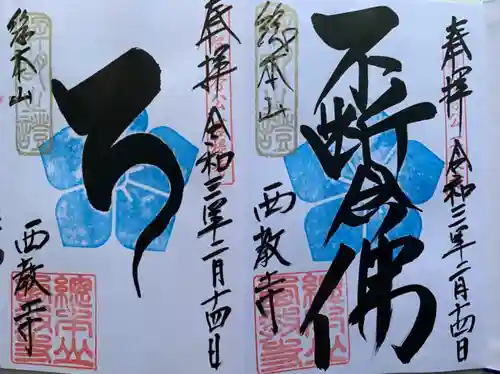 奉拝 令和三年二月十四日
不断念佛
総本山
西教寺
奉拝 令和三年二月十四日
ろ
総本山
西教寺